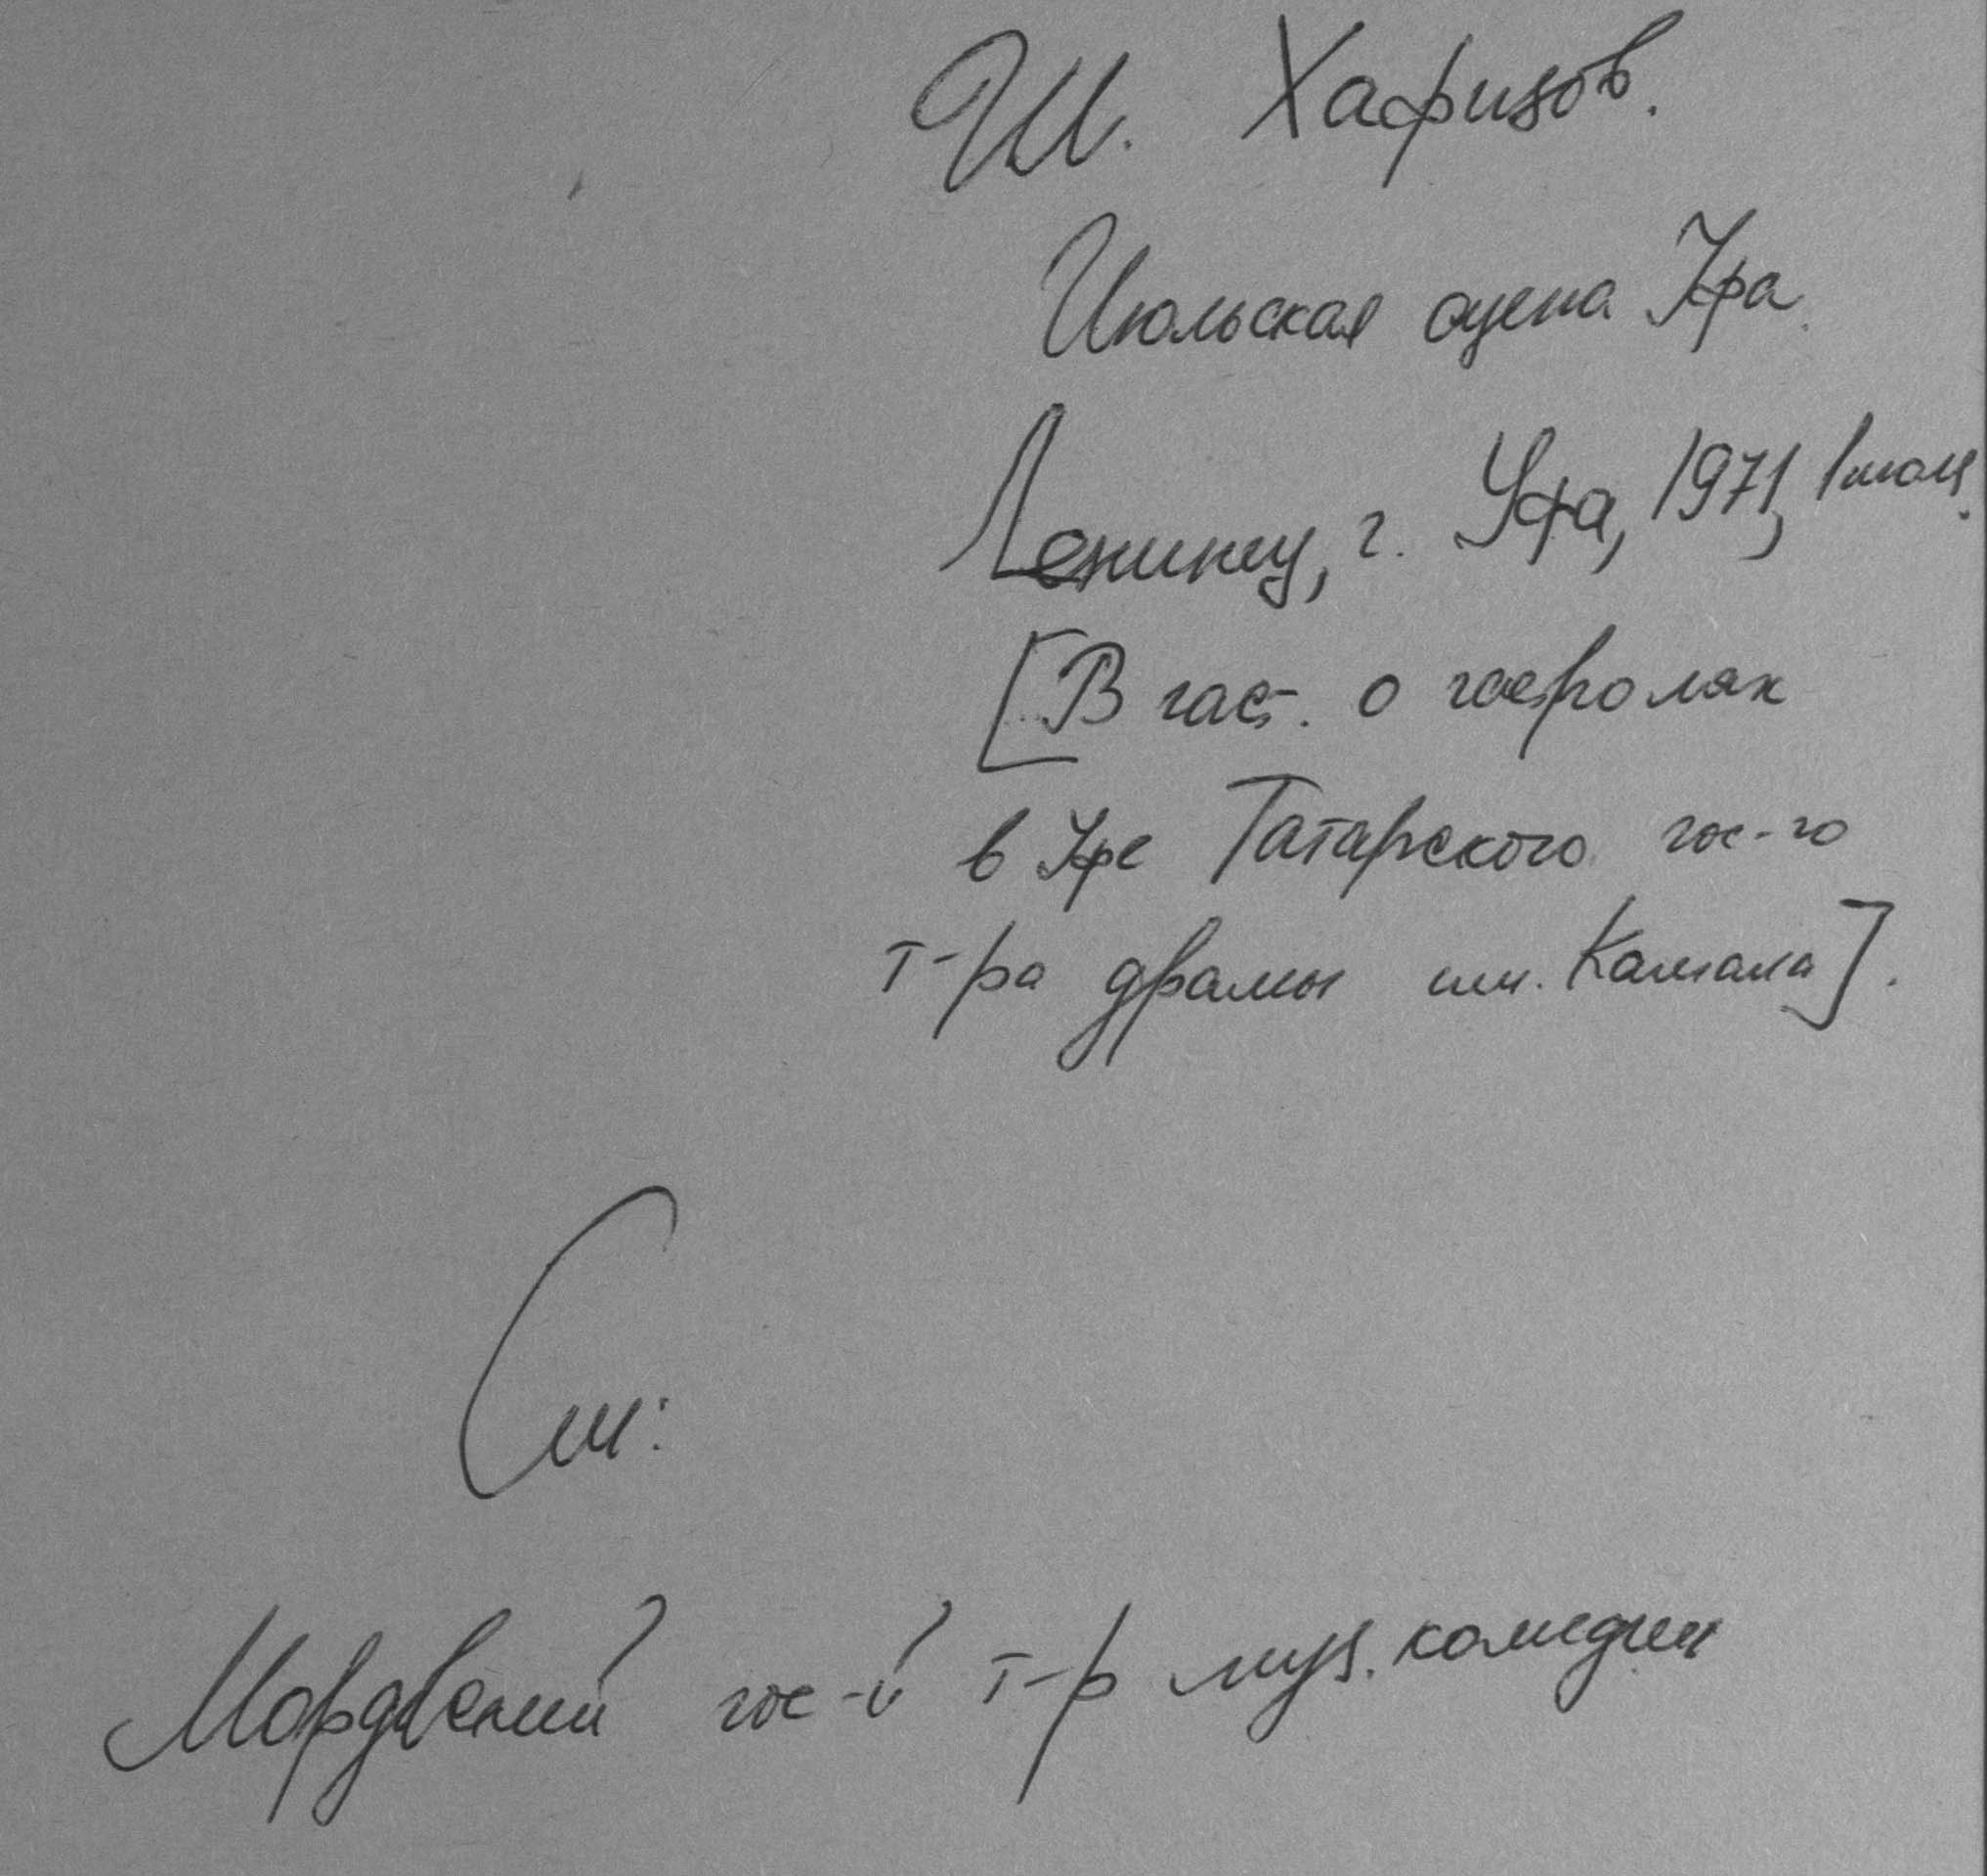 Ш. Хафизов.
Июльская сцена Уфа.
Ленинец, г. Уфа, 1971, 1 июля.
[В част. о гастролях
в Уфе Татарского гос-го
т-ра драмы им. Камала].
См:
Мордовский гос-й т-р муз. комедии